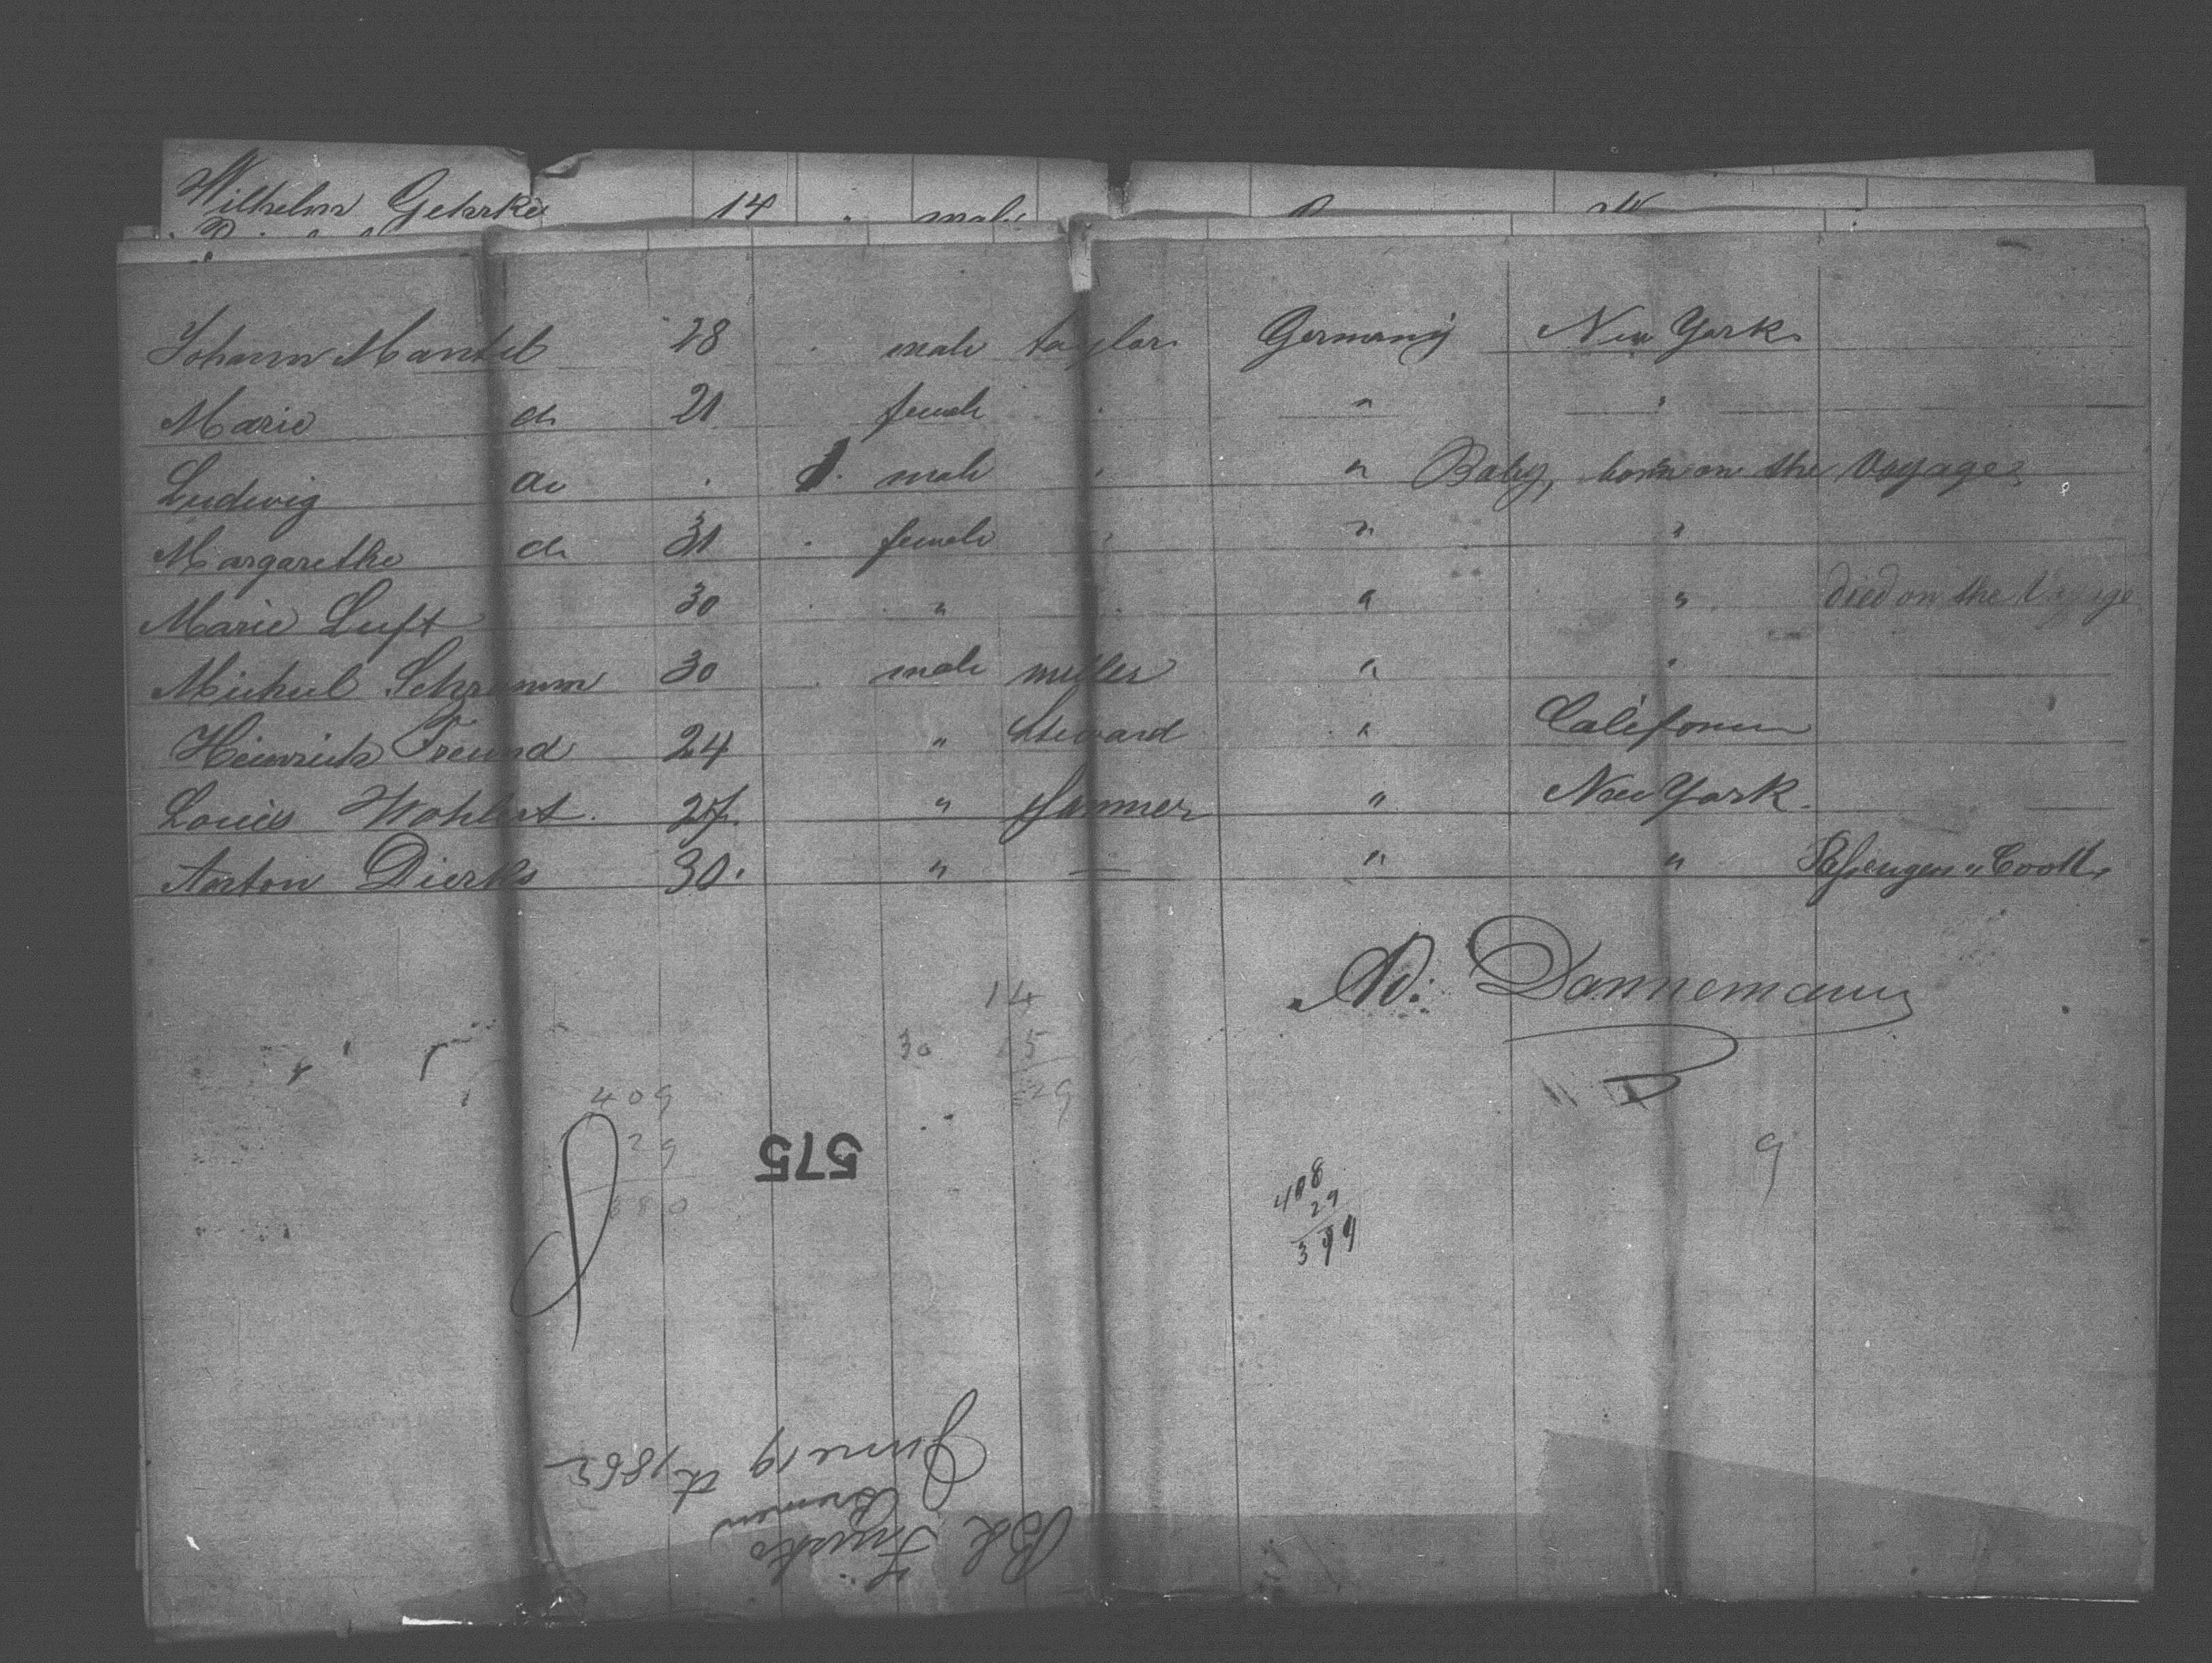 Wilhelm Gehrke 14 " male
Johann Mantel 28 . male taylor Germany New York
Marie do 21 female " " "
Ludwig do . 1. male " " Baby, born on the Voyage
Margarethe do 31 . female " " "
Marie Luft 30 . " . " " died on the Voyage
Michel Schramm 30 . male miller " "
Heinrich Freund 24 " Steward " California
Louis Wohlert. 27. " farmer " New York.
Anton Dierks 30. " — " " Passenger Cook
D. Dannemann
14
30 15
29
409
29
380
575
408
29
394
9
Bk
Bremen
June 19 th 1862